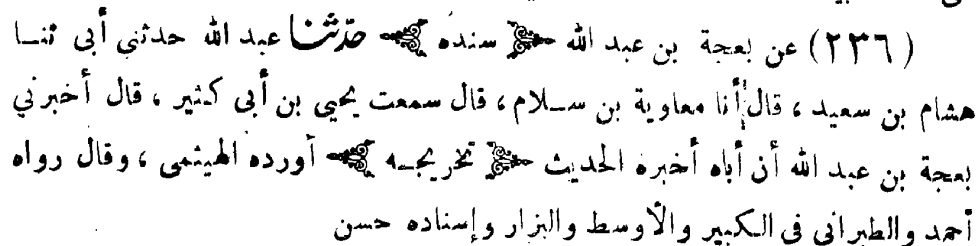 (٢٣٦) عن بعجة بن عبد الله ﴿ سنده ﴾ حدثنا عبد الله حدثني أبي ثنا
هشام بن سعيد ، قال أنا معاوية بن سلام ، قال سمعت يحيى بن أبي كثير ، قال أخبرني
بعجة بن عبد الله أن أباه أخبره الحديث ﴿ تخريجه ﴾ أورده الهيثمى ، وقال رواه
أحمد والطبراني في الكبير والأوسط والبزار وإسناده حسن